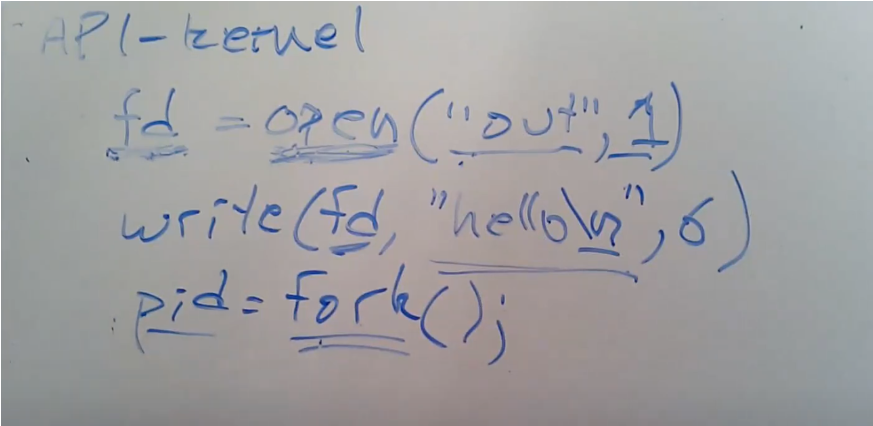 API-kernel
fd = open("out", 1)
write(fd, "hello\n", 6)
pid = fork();